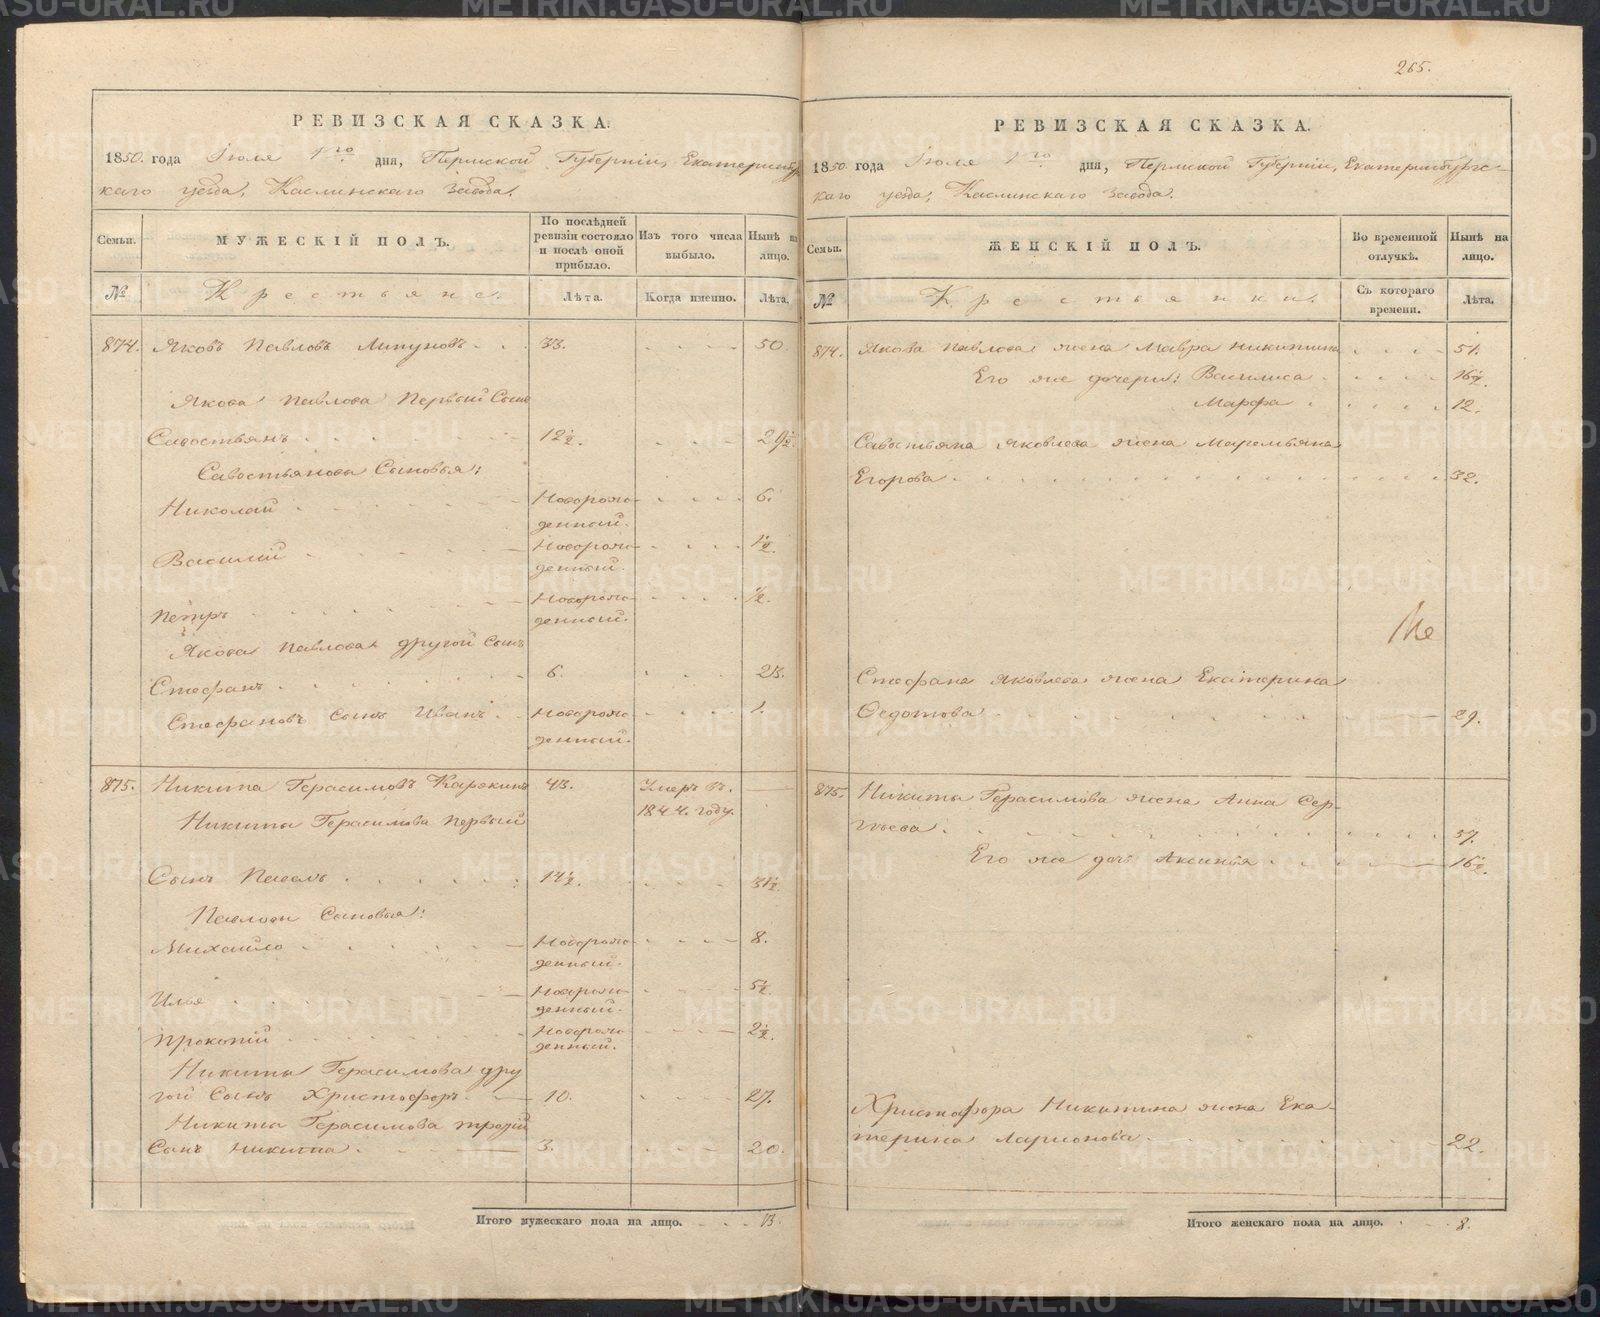 265.
РЕВИЗСКАЯ СКАЗКА.
1850. года Іюля 1го дня, Пермской Губерніи, Екатеринбургс-
каго уезда, Каслинскаго Завода.
Семьи.
МУЖЕСКІЙ ПОЛЪ.
По послѣдней ревизіи состояло и послѣ оной прибыло.
Изъ того числа выбыло.
Нынѣ на лицо.
№
Крестьяне.
Лѣта.
Когда именно.
Лѣта.
874. Яковъ Павловъ Липуновъ 33. 50.
Якова Павлова Первый Сынъ
Савостьянъ 12½. 29½.
Савостьяновы Сыновья:
Николай Новорожденный. 6.
Василій Новорожденный. 1½.
Петръ Новорожденный. ½.
Якова Павлова другой Сынъ
Стефанъ 6. 23.
Стефановъ Сынъ Иванъ Новорожденный. 1.
875. Никита Герасимовъ Карэкинъ 43. Умеръ въ 1844. году.
Никиты Герасимова Первый
Сынъ Павелъ 14½. 31½.
Павловы Сыновья:
Михайло Новорожденный. 8.
Илья Новорожденный. 5½.
Прокопій Новорожденный. 2½.
Никиты Герасимова дру
гой Сынъ Христофоръ 10. 27.
Никиты Герасимова третій
Сынъ Никита 3. 20.
Итого мужескаго пола на лицо. 13.
РЕВИЗСКАЯ СКАЗКА.
1850 года Іюля 1го дня, Пермской Губерніи, Екатеринбургс-
каго уезда, Каслинскаго Завода.
Семьи.
ЖЕНСКІЙ ПОЛЪ.
Во временной отлучкѣ.
Нынѣ на лицо.
№
Крестьянки.
Съ котораго времени.
Лѣта.
874. Якова Павлова жена Мавра Никитина 51.
Его же дочери: Василиса 16½.
Марфа 12.
Савостьяна Яковлева жена Маремьяна
Егорова 32.
Стефана Яковлева жена Екатерина
Федотова 29.
875. Никиты Герасимова жена Анна Сер-
гѣева 57.
Его же дочь Аксинья 16½.
Христофора Никитина жена Ека-
терина Ларионова 22.
Итого женскаго пола на лицо. 8.
METRIKI.GASO-URAL.RU